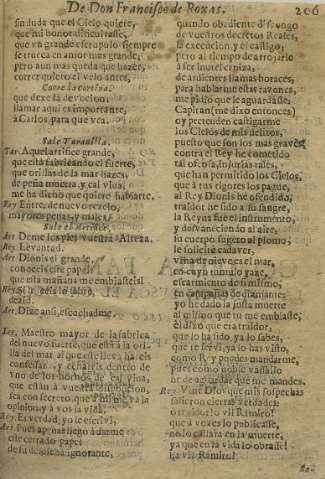 De Don Francisco de Roxas. 206
sin duda que el Cielo quiere,
que mi honor dificultasse,
que vn grande escrupulo siempre
se trueca en amor mas grande,
pero aun mas queda que hazer,
correr quiero el velo antes,
Corre la cortina.
que dexe la devocion:
llamar aqui es importante,
à Carlos, para que vea.
Sale Taravilla.
Tar. Aquel artifice grande,
que està fabricando el fuerte,
que orillas de la mar hazes,
de peña muerta, y cal viua,
me ha dicho que quiere hablarte.
Rey Entre, de nuevo rezelo,
mayores penas, y males.
Sale el Artifice.
Art. Deme los pies vuestra Alteza.
Rey. Levantad.
Art. Dionis el grande,
conoceis este papel?
que esta mañana me embiasteis!
Rey Si, ya le os lo
dezid.
Art. Dize ansi, escuchadme.
Ley, Maestro mayor de la fabrica
del nuevo fuerte, que està à la orilla
del mar al que este lleva hareis
confessar, y echareis dentro de
vno de los hornos de cal viua,
que estàn à vuestra disposicion,
sea con secreto, que à mi me và la
opinion, y à vos la vida.
Rey. Es verdad, yo le escrivì.
Art. Pues apenas llegò à darme
este cerrado papel
de su desdicha ignorante,
quando obediente dispongo
de vuestros decretos Reales,
la execucion, y el castigo;
pero al tiempo de arrojarle
à ser inutil ceniza,
de ardientes llamas voraces,
para hablarme estas razones,
me pidiò que le aguardasse:
Capitan (me dixo entonces)
oy pretenden castigarme
los Cielos de mis delitos,
puesto que son los mas graves
contra el Rey he cometido
tal ofensa, injurias tales,
que han permitido los Cielos,
que à tus rigores los pague,
al Rey Dionis he ofendido,
traidor he sido à su sangre,
la Reyna fue el instrumento,
y desvaneciendo al aire,
tu cuerpo sugeto al plomo,
le solicitè cadaver,
vrna de nieve es el mar,
en cuyo tumulo yaze,
escarmiento de si mismo,
yo he dado la justa muerte
al mismo que tu me embiaste,
el dixo que era traidor,
que lo ha sido, ya lo sabes,
que te leì, ya lo has visto,
como Rey puedes mandarme,
pues como noble vassallo
he de aguardar que me mandes.
Rey. Viue Dios que mis sospechas
salieron ciertas verdades:
o traidor! o vil Ramiro!
que à vozes lo publicasse,
no lo callara en la muerte,
ya que en la vida lo obraste!
ha vil Ramiro!